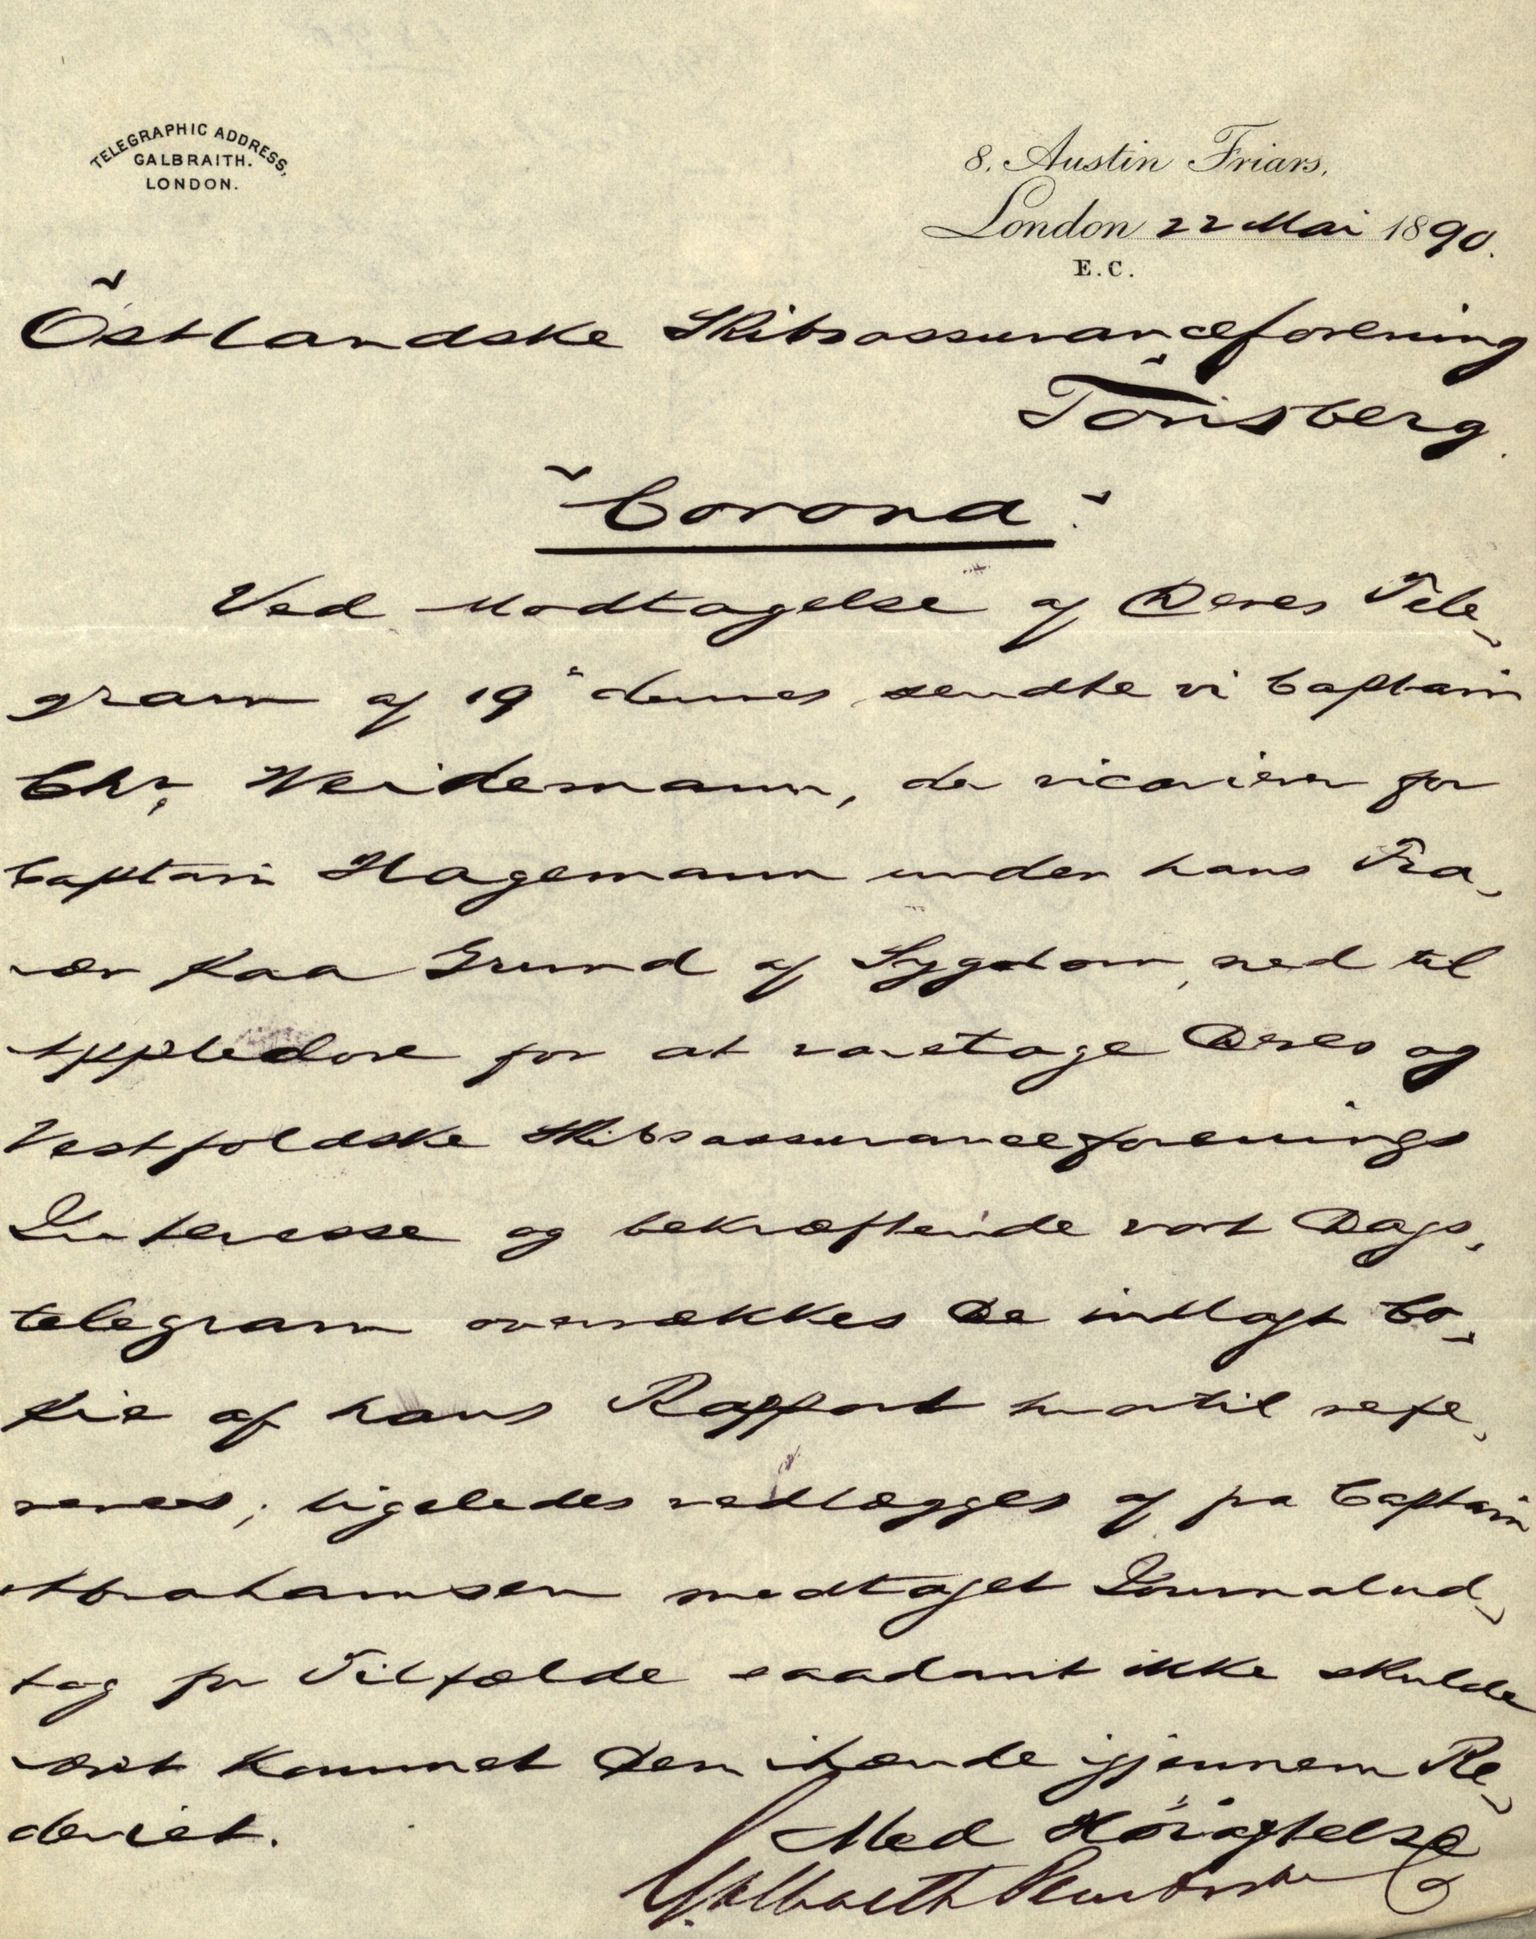 TELEGRAPHIC ADDRESS,
GALBRAITH.
LONDON.
8, Austin Friars,
London 22 Mai 1890.
E.C.
Östlandske Skibsassuranceforening
Tönsberg.
"Corona"
Ved Modtagelse af Deres Tele-
gram af 19 dennes sendte vi Captain
Chr. Weidemann, der vicarierer for
Captain Hagemann under hans Fra-
vær paa Grund af Sygdom, ned til
Appledore for at varetage Deres og
Vestfoldske Skibsassuranceforenings
Interesse og bekræftende vort Dags-
telegram overrækkes De indlagt Co-
pie af hans Rapport hvortil refe-
reres; ligeledes vedlægges af fra Captain
Abrahamsen modtaget Journalud-
tog for Tilfælde saadant ikke skulde
være kommet Dem ihænde igjennem Re-
deriet.
Med Høiagtelse
Galbraith